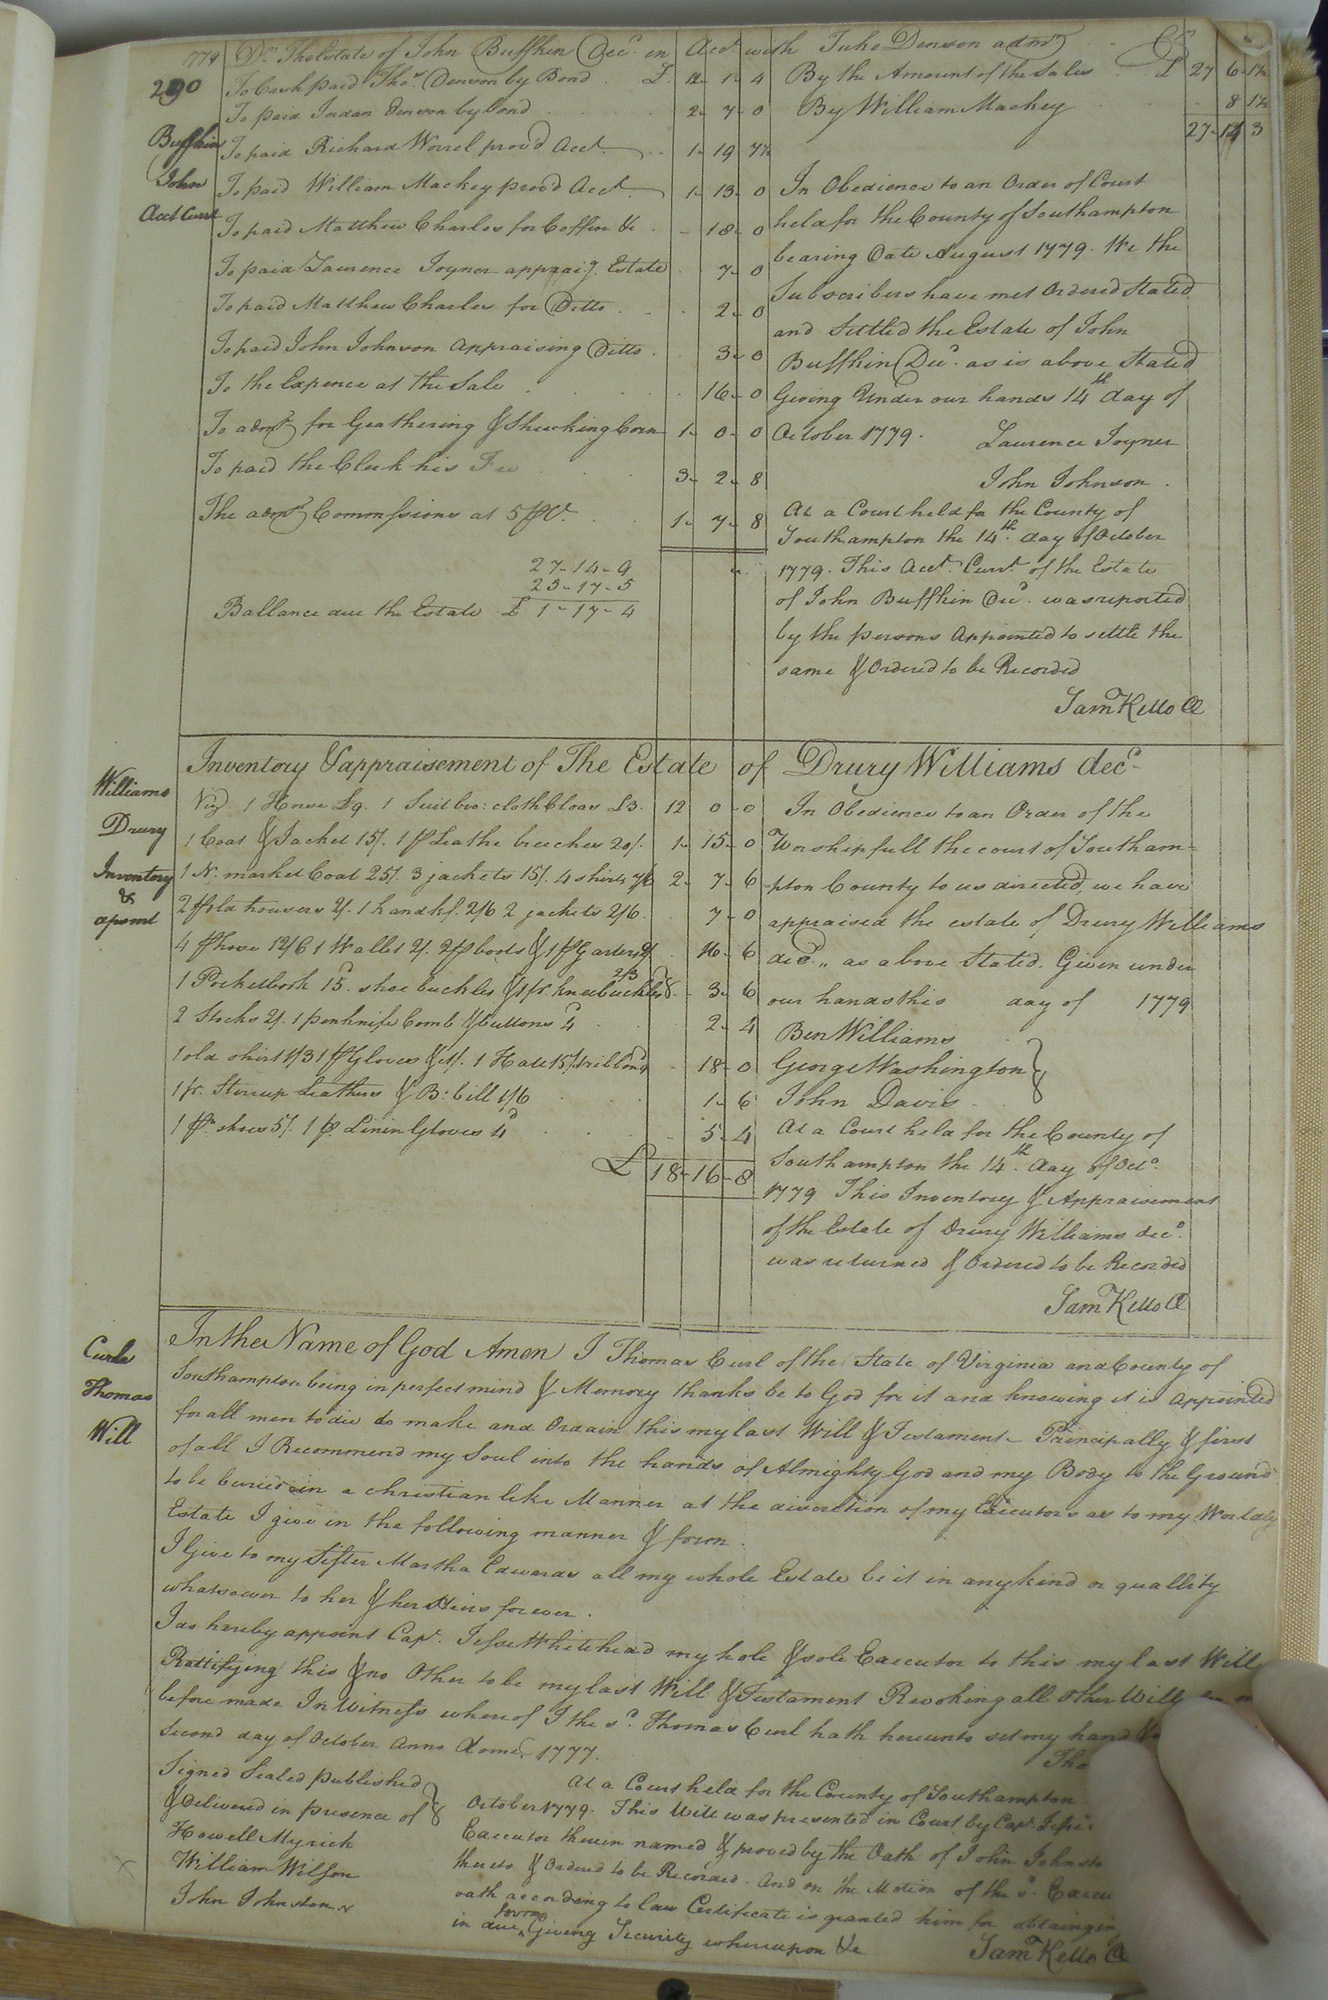 290
Buffkin
John
Acct Curt
1779 Dr. The Estate of John Buffkin Decd. in Acct. with Tuke Denson admr. Cr
To Cash paid Thos. Denson by Bond £ 12 - 1 - 4
To paid Jordan Denson by bond 2 - 7 - 0
To paid Richard Worrel prov'd Acct. 1 - 19 - 7½
To paid William Mackey prov'd Acct. 1 - 13 - 0
To paid Matthew Charles for Coffin &c - 18 - 0
To paid Laurence Joyner appraisg. Estate 7 - 0
To paid Matthew Charles for Ditto 2 - 0
To paid John Johnson Appraising Ditto 3 - 0
To the Expence at the Sale 16 - 0
To admr. for Geathering & Shucking Corn 1 - 0 - 0
To paid the Clerk his Fee 3 - 2 - 8
The admrs. Commissions at 5 pCt. 1 - 7 - 8
27 - 14 - 9
25 - 17 - 5
Ballance due the Estate £ 1 - 17 - 4
By the Amount of the Sales £ 27 6 1½
By William Mackey 8 1½
27 - 14 3
In Obedience to an Order of Court
held for the County of Southampton
bearing Date August 1779. We the
Subscribers have met Ordered Stated
and Settled the Estate of John
Buffkin Decd. as is above Stated
Giving Under our hands 14th day of
October 1779. Laurence Joyner
John Johnson.
At a Court held for the County of
Southampton the 14th. day of October
1779. This Acct. Curt. of the Estate
of John Buffkin Decd. was reported
by the persons Appointed to settle the
same & Ordered to be Recorded
Saml Kello Cl
Williams
Drury
Inventory
&
apsmt
Inventory & appraisement of The Estate of Drury Williams decd.
Viz. 1 Horse £9. 1 Suit bro: cloth Cloas £3. 12 0 - 0
1 Coat & Jacket 15/. 1 pr Leathe breeches 20/. 1 - 15 - 0
1 N. market Coat 25/. 3 jackets 15/. 4 shirts 7/6 2 - 7 - 6
2 pr old trousers 2/. 1 handkf. 2/6 2 jackets 2/6. 7 - 0
4 pr hose 12/6 1 Wallet 2/. 2 pr boots & 1 pr Garters 2/. 16 - 6
1 Pocketbook 15d. shoe buckles & 1 pr. kneebuckles 2/3 3 - 6
2 Stocks 2/. 1 penknife Comb & buttons 4d 2 - 4
1 old shirt 1/3 1 pr Gloves 1/. 1 Hatt 15/. 18 - 0
1 pr. Stirrup Leathers & B: bill 1/6 1 - 6
1 pr. shoes 5/. 1 p. Linin Gloves 4d 5 - 4
£ 18 - 16 - 8
In Obedience to an Order of the
Worshipfull the court of Southam=
pton County to us directed, we have
appraised the estate of Drury Williams
decd. as above Stated. Given under
our hands this day of 1779
Ben Williams
George Washington
John Davis
At a Court held for the County of
Southampton the 14th. day of Octo.
1779 This Inventory & Appraisement
of the Estate of Drury Williams decd.
was returned & Ordered to be Recorded
Saml Kello Cl
Curle
Thomas
Will
In the Name of God Amen I Thomas Curl of the State of Virginia and County of
Southampton being in perfect mind & Memory thanks be to God for it and knowing it is appointed
for all men to die do make and Ordain this my last Will & Testament - Principally & first
of all I Recommend my Soul into the hands of Almighty God and my Body to the Ground
to be buried in a christian like Manner at the discretion of my Executors as to my Worldly
Estate I give in the following manner & form.
I Give to my Sister Martha Edwards all my whole Estate be it in any kind or quallity
whatsoever to her & her Heirs forever.
I do hereby appoint Capt. Jesse Whitehead my hole & sole Executor to this my last Will
Rattifying this & no Other to be my last Will & Testament Revoking all other Wills
before made In Witness whereof I the sd. Thomas Curl hath hereunto set my hand
Second day of October Anno Dome. 1777. Tho
Signed Sealed Published
& Delivered in presence of
Howell Myrick
William Wilson
John Johnston
At a Court held for the County of Southampton
October 1779. This Will was presented in Court by Capt. Jesse
Executor therein named & proved by the Oath of John Johnsto
thereto & Ordered to be Recorded. And on the Motion of the sd. Execu
oath according to law Certificate is granted him for obtaining
in due form Giving Security whereupon &c
Saml Kello Cl